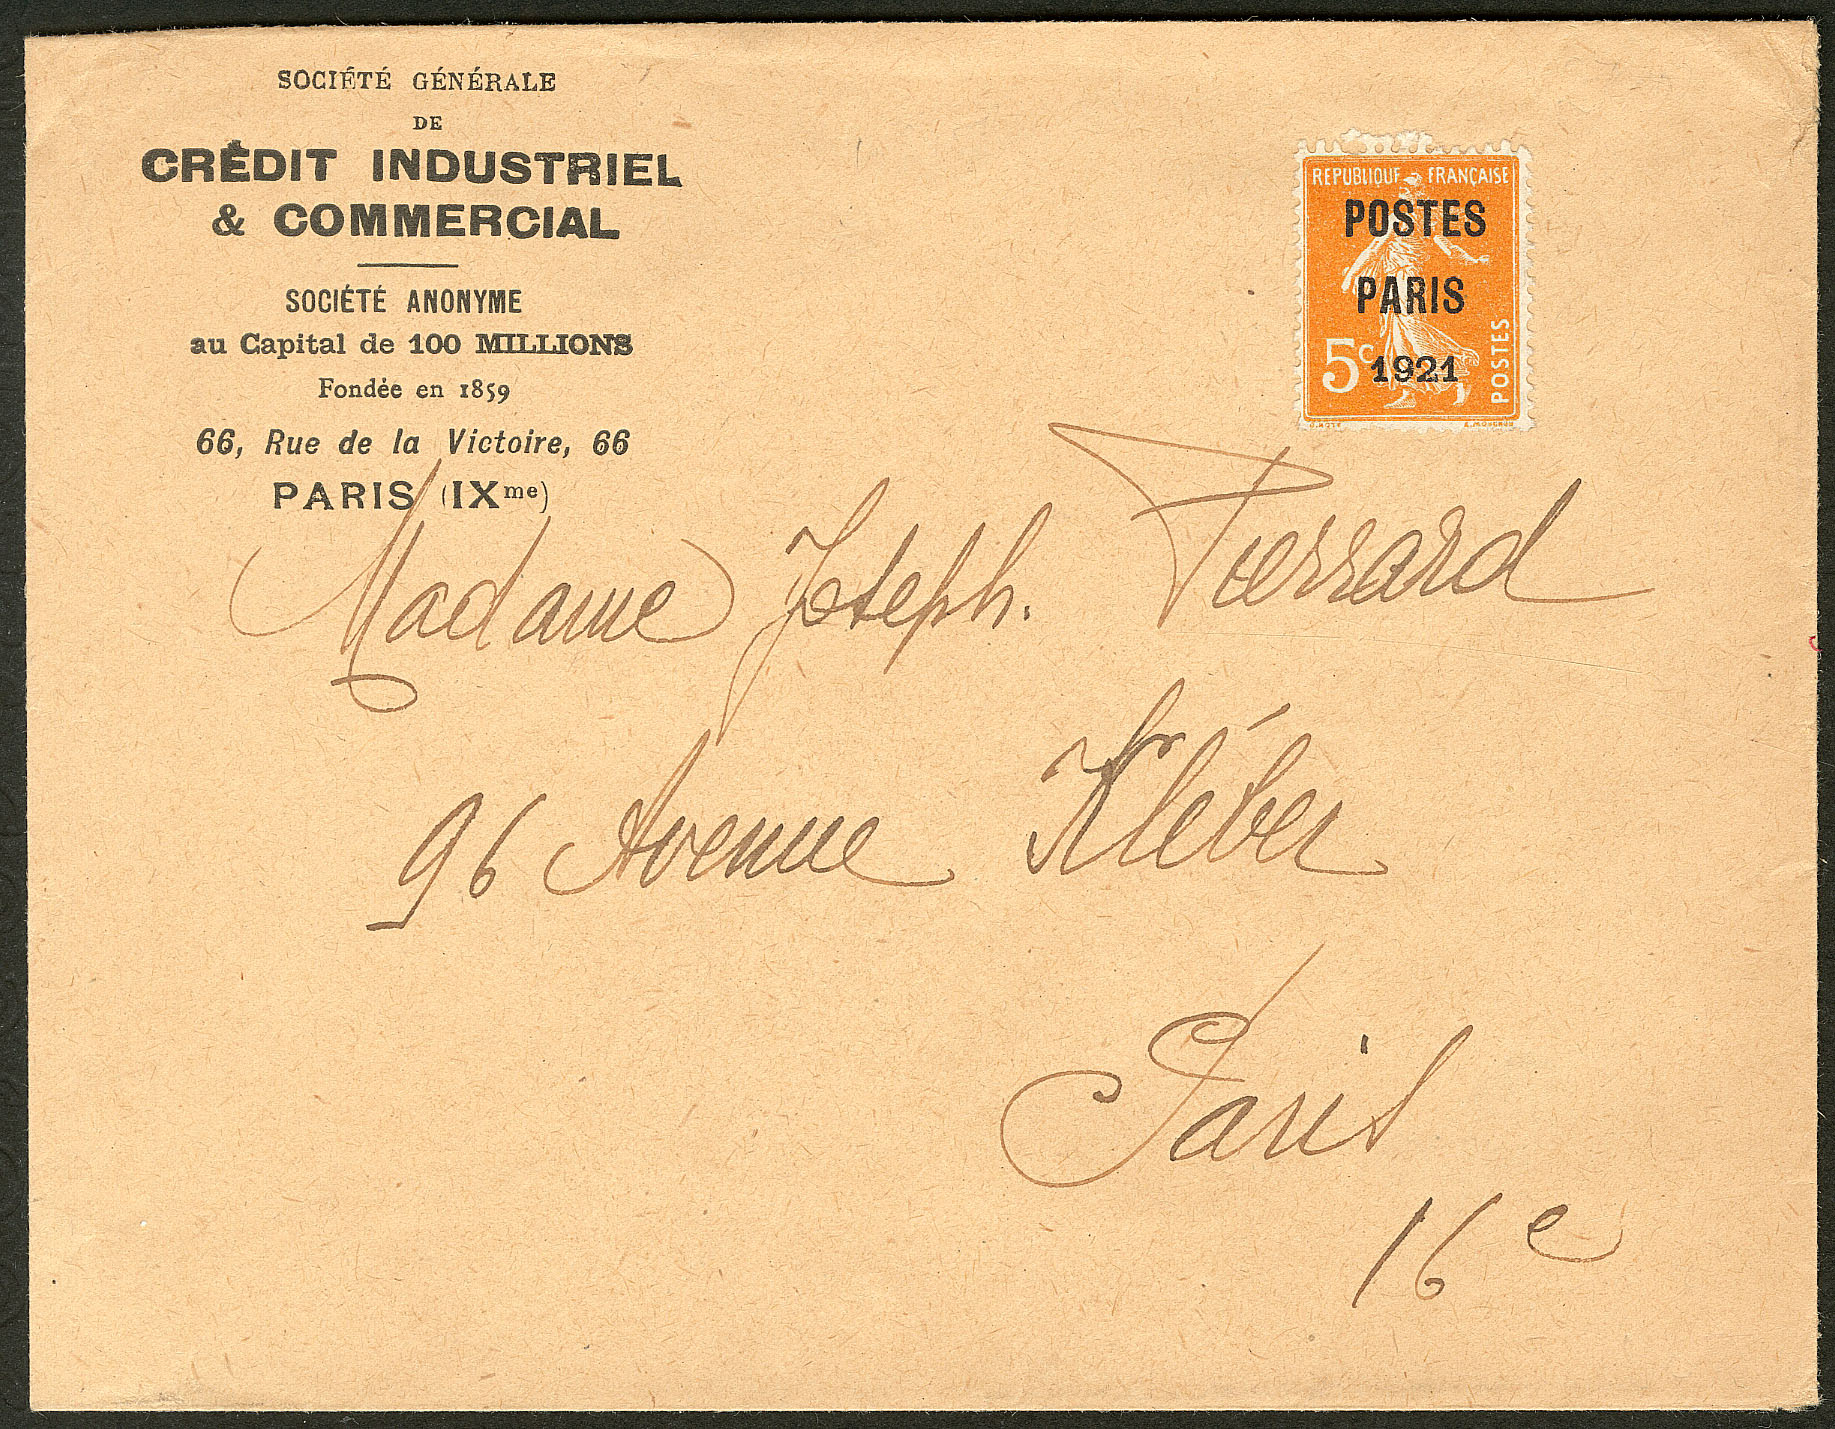 SOCIÉTÉ GÉNÉRALE
DE
CRÉDIT INDUSTRIEL
& COMMERCIAL
SOCIÉTÉ ANONYME
au Capital de 100 MILLIONS
Fondée en 1859
66, Rue de la Victoire, 66
PARIS (IXme)
REPUBLIQUE FRANÇAISE
POSTES
PARIS
1921
5c
POSTES
Madame Joseph
96 Avenue Kléber
Paris
16e